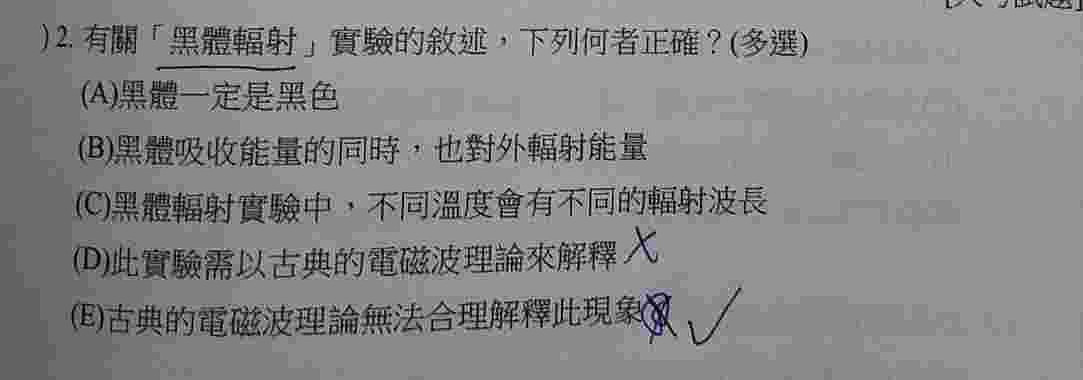 [大考試題]
)2. 有關「黑體輻射」實驗的敘述，下列何者正確？(多選)
(A)黑體一定是黑色
(B)黑體吸收能量的同時，也對外輻射能量
(C)黑體輻射實驗中，不同溫度會有不同的輻射波長
(D)此實驗需以古典的電磁波理論來解釋 X
(E)古典的電磁波理論無法合理解釋此現象 ✓